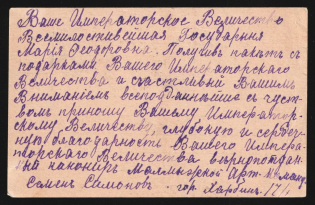 Ваше Императорское Величество
Всемилостивейшая Государыня
Марія Феодоровна. Получивъ пакетъ съ
подарками Вашего Импера-
торскаго
Величества и счастливый Вашимъ
Вниманіемъ всеподданнѣйше съ чуст-
вомъ приношу Вашему Император-
скому Величеству, глубокую и сердеч-
ную благодарность Вашего Импера-
торскаго Величества вѣрноподдан-
ный канониръ Арт. команд
Семенъ Симоновъ гор. Харбинъ. 17/